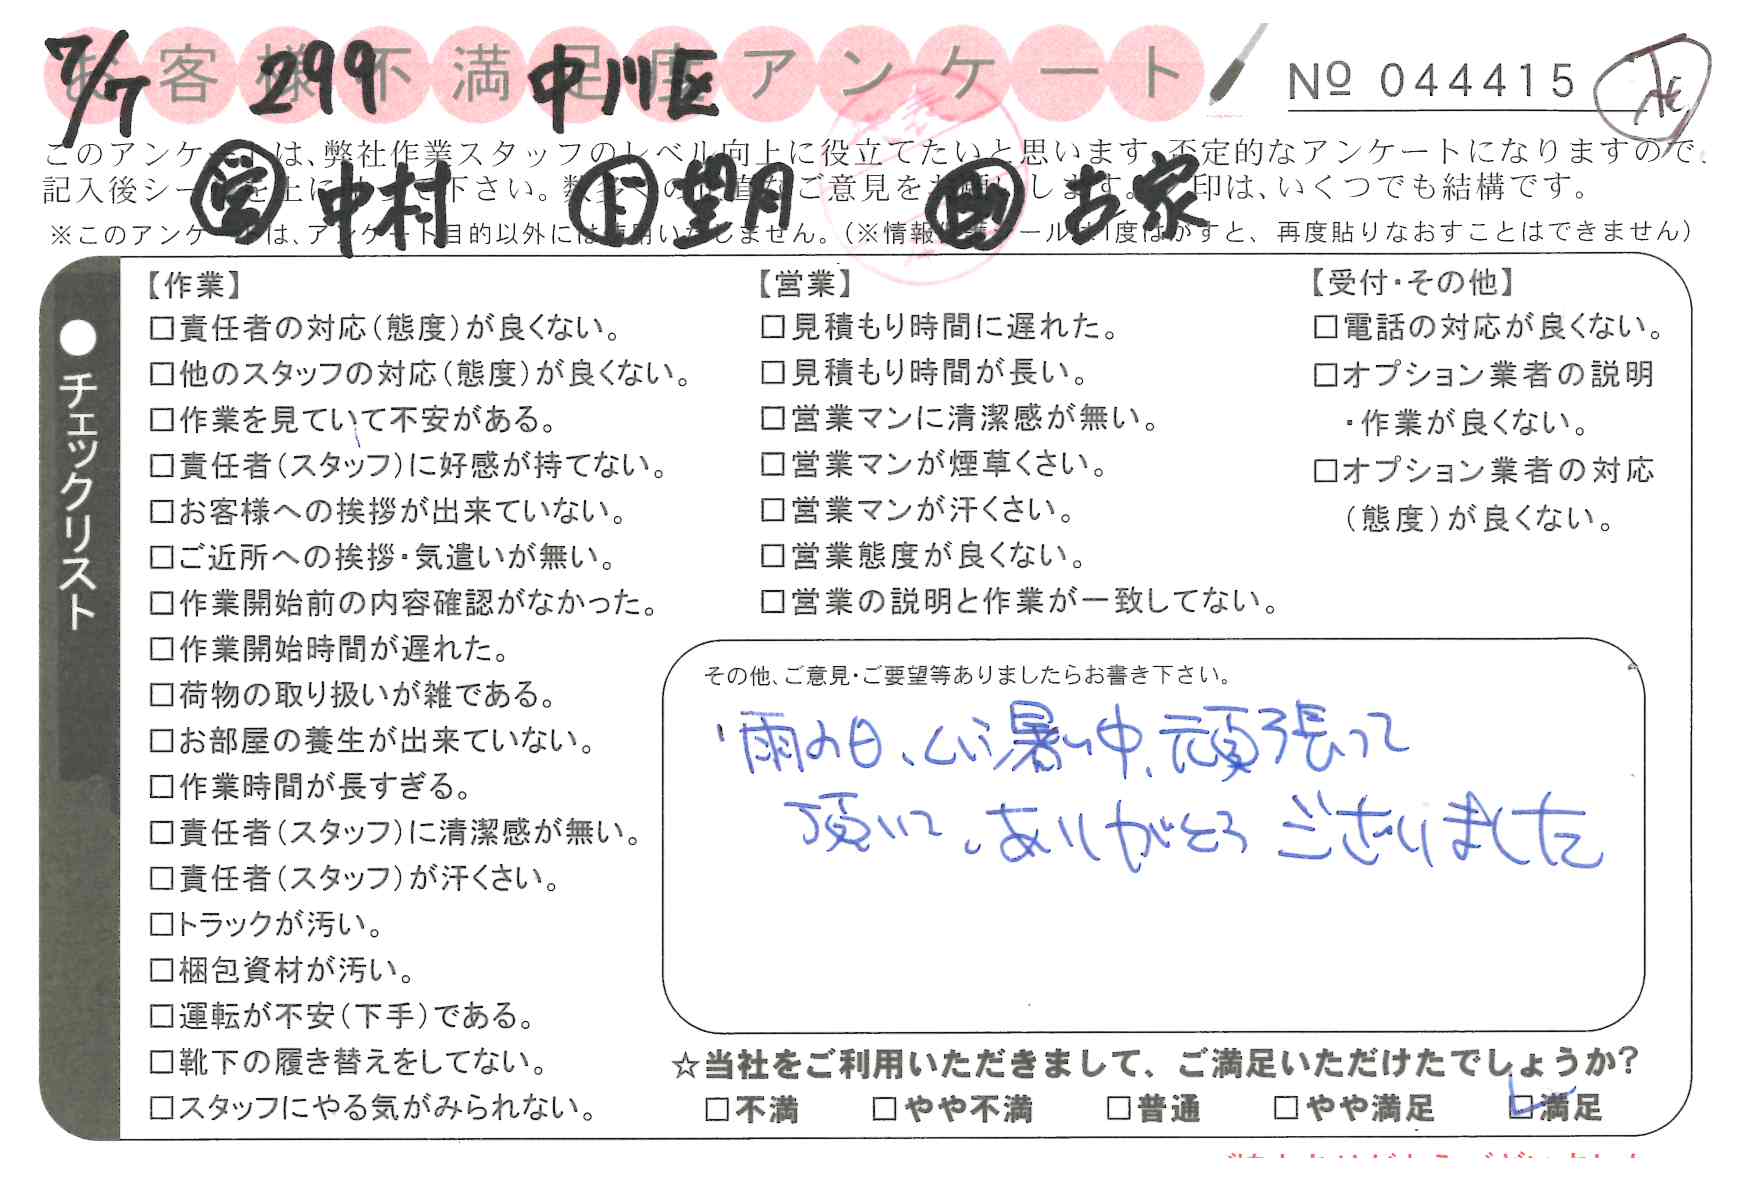 お客様不満足度アンケート
7/7 299 中川区
№ 044415
このアンケートは、弊社作業スタッフのレベル向上に役立てたいと思います。不定的なアンケートになりますので、
記入後シールを上に 下さい。 ご意見をお願いします。 印は、いくつでも結構です。
中村 下 望月 助 古家
※このアンケートは、アンケート目的以外には使用いたしません。(※情報保護シールは1度はがすと、再度貼りなおすことはできません)
●チェックリスト
【作業】
□責任者の対応(態度)が良くない。
□他のスタッフの対応(態度)が良くない。
□作業を見ていて不安がある。
□責任者(スタッフ)に好感が持てない。
□お客様への挨拶が出来ていない。
□ご近所への挨拶・気遣いが無い。
□作業開始前の内容確認がなかった。
□作業開始時間が遅れた。
□荷物の取り扱いが雑である。
□お部屋の養生が出来ていない。
□作業時間が長すぎる。
□責任者(スタッフ)に清潔感が無い。
□責任者(スタッフ)が汗くさい。
□トラックが汚い。
□梱包資材が汚い。
□運転が不安(下手)である。
□靴下の履き替えをしてない。
□スタッフにやる気がみられない。
【営業】
□見積もり時間に遅れた。
□見積もり時間が長い。
□営業マンに清潔感が無い。
□営業マンが煙草くさい。
□営業マンが汗くさい。
□営業態度が良くない。
□営業の説明と作業が一致してない。
【受付・その他】
□電話の対応が良くない。
□オプション業者の説明
・作業が良くない。
□オプション業者の対応
(態度)が良くない。
その他、ご意見・ご要望等ありましたらお書き下さい。
雨の日、むし暑い中、頑張って
頂いて、ありがとうございました
☆当社をご利用いただきまして、ご満足いただけたでしょうか?
□不満 □やや不満 □普通 □やや満足 ☑満足